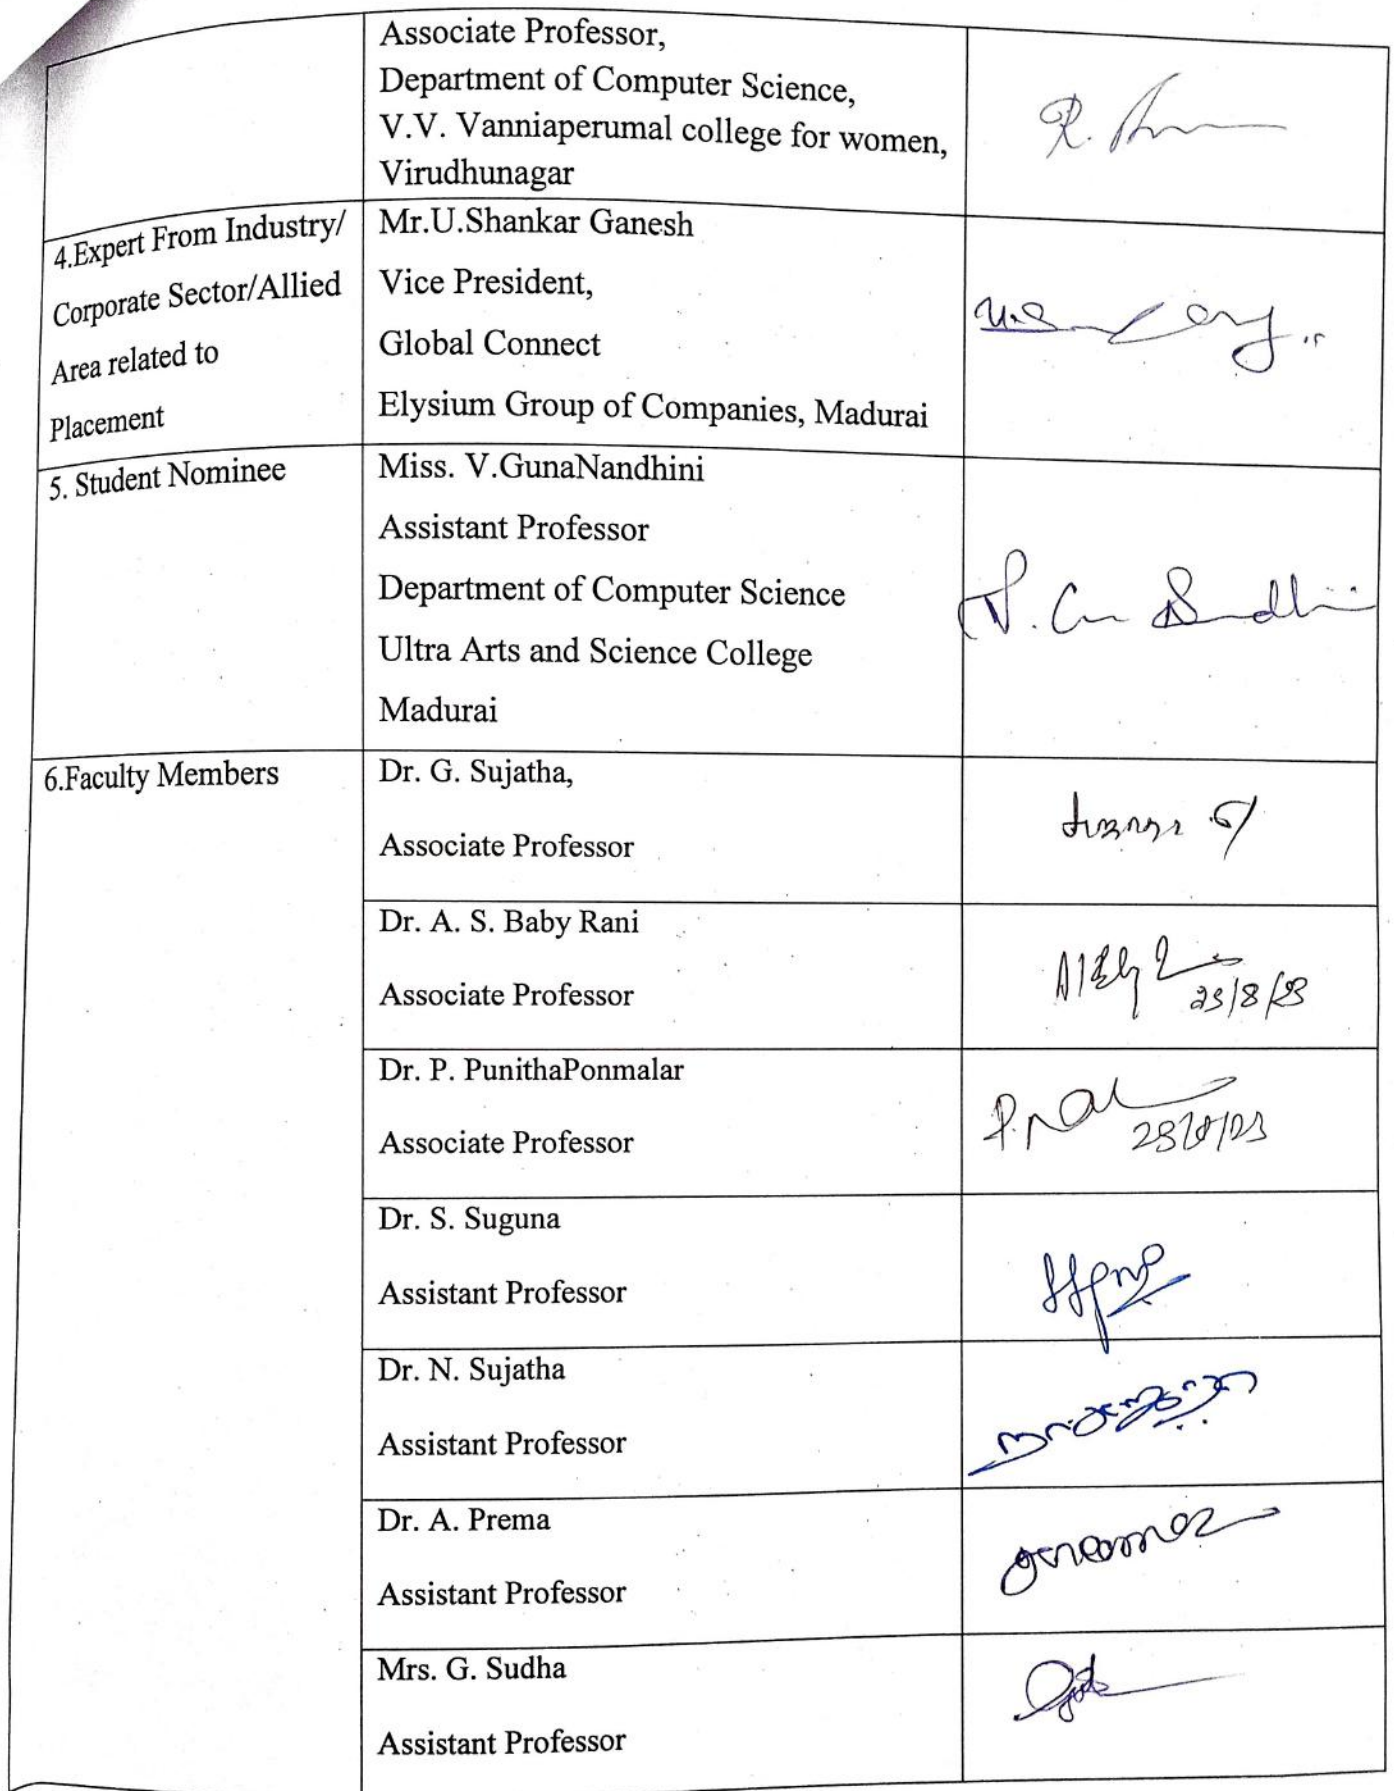 Associate Professor,
Department of Computer Science,
V.V. Vanniaperumal college for women,
Virudhunagar
R.
4.Expert From Industry/
Corporate Sector/Allied
Area related to
Placement
Mr.U.Shankar Ganesh
Vice President,
Global Connect
Elysium Group of Companies, Madurai
U.S
5. Student Nominee
Miss. V.GunaNandhini
Assistant Professor
Department of Computer Science
Ultra Arts and Science College
Madurai
6.Faculty Members
Dr. G. Sujatha,
Associate Professor
Dr. A. S. Baby Rani
Associate Professor
23/8/23
Dr. P. PunithaPonmalar
Associate Professor
Dr. S. Suguna
Assistant Professor
Dr. N. Sujatha
Assistant Professor
Dr. A. Prema
Assistant Professor
Mrs. G. Sudha
Assistant Professor